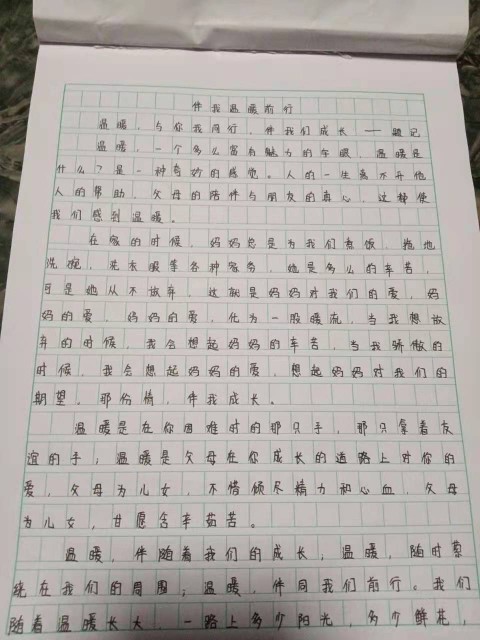 伴我温暖前行
温暖，与你我同行，伴我们成长 —— 题记
温暖，一个多么富有魅力的字眼，温暖是
什么？是一种奇妙的感觉。人的一生离不开他
人的帮助，父母的陪伴与朋友的真心，这都使
我们感到温暖。
在家的时候，妈妈总是为我们煮饭，拖地
洗碗，洗衣服等各种家务，她是多么的辛苦，
可是她从不放弃。这就是妈妈对我们的爱，妈
妈的爱，妈妈的爱，化为一股暖流，当我想放
弃的时候，我会想起妈妈的辛苦，当我骄傲的
时候，我会想起妈妈的爱，想起妈妈对我们的
期望，那份情，伴我成长。
温暖是在你困难时的那只手，那只拿着友
谊的手；温暖是父母在你成长的道路上对你的
爱，父母为儿女，不惜倾尽精力和心血，父母
为儿女，甘愿含辛茹苦。
温暖，伴随着我们的成长，温暖，随时萦
绕在我们的周围；温暖，伴同我们前行。我们
随着温暖长大，一路上多少阳光，多少鲜花，